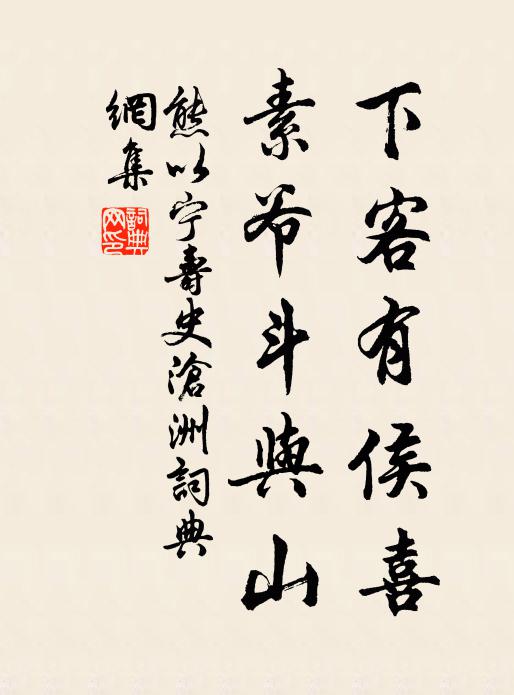 下客有侯喜
素爷斗與山
熊以宁壽史滄洲詞典
網集
詞典網印